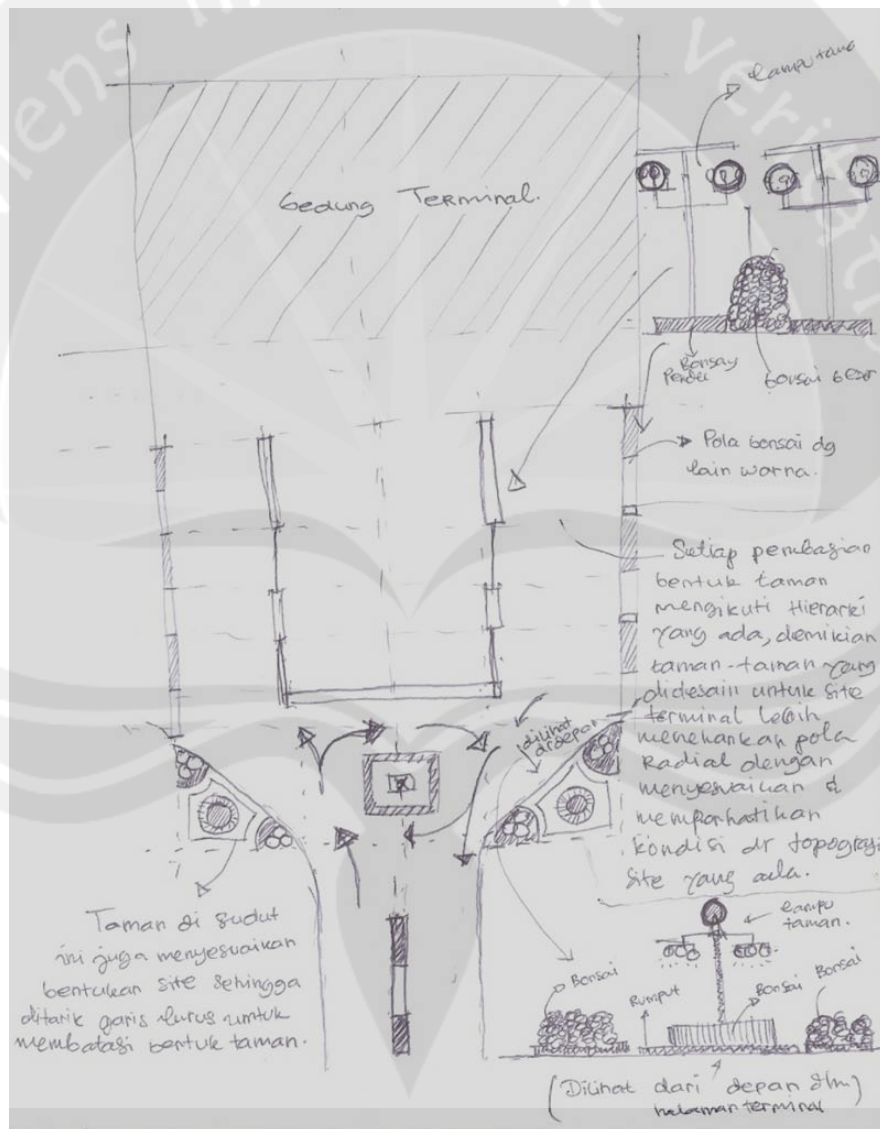 Gedung Terminal.
lampu tama
Bonsay
Pendek
bonsai besar
Pola bonsai dg
lain warna.
Setiap pembagian
bentuk taman
mengikuti Hierarki
yang ada, demikian
taman-taman yang
didesain untuk site
terminal lebih
menekankan pola
Radial dengan
menyesuaikan &
memperhatikan
kondisi dr topografi
site yang ada.
dilihat
dr depan
Taman di sudut
ini juga menyesuaikan
bentukan site sehingga
ditarik garis lurus untuk
membatasi bentuk taman.
lampu
taman.
Bonsai
Rumput
Bonsai
Bonsai
(Dilihat dari depan dlm)
halaman terminal
mens
veritatis